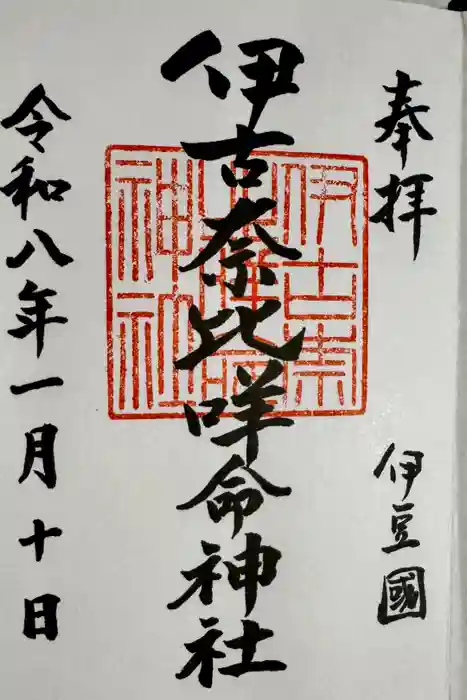 奉拝
伊豆國
伊古奈比咩命神社
令和八年一月十日
伊古奈
比咩命
神社